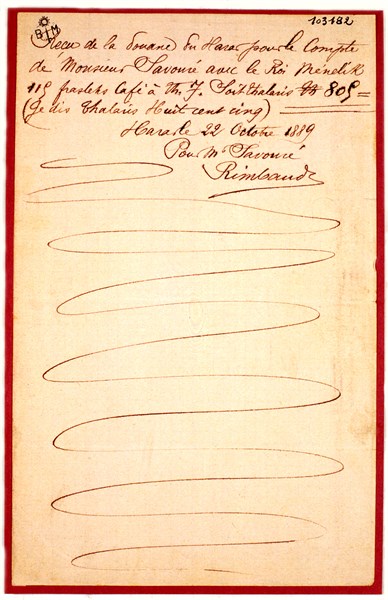 103182
BLM
Reçu de la douane du Harar pour le Compte
de Monsieur Savouré avec le Roi Menelik
115 fraslehs Café à th. 7. Soit thalaris 805=
(Je dis thalaris Huit cent cinq)
Harar le 22 Octobre 1889
Pour Mr Savouré
Rimbaud